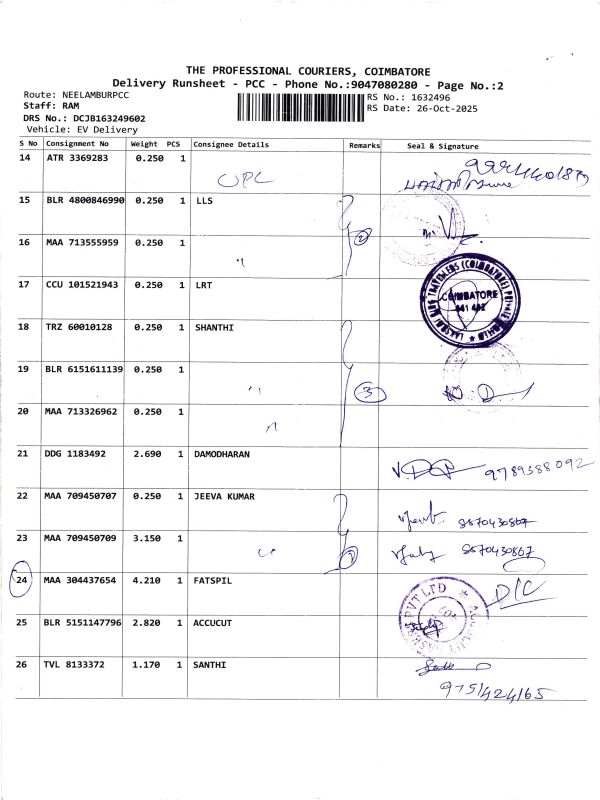 THE PROFESSIONAL COURIERS, COIMBATORE
Delivery Runsheet - PCC - Phone No.:9047080280 - Page No.:2
Route: NEELAMBURPCC
Staff: RAM
DRS No.: DCJB163249602
Vehicle: EV Delivery
RS No.: 1632496
RS Date: 26-Oct-2025
S No Consignment No Weight PCS Consignee Details Remarks Seal & Signature
14 ATR 3369283 0.250 1
15 BLR 4800846990 0.250 1 LLS
16 MAA 713555959 0.250 1 " 2
17 CCU 101521943 0.250 1 LRT COIMBATORE
18 TRZ 60010128 0.250 1 SHANTHI
19 BLR 6151611139 0.250 1 " 3
20 MAA 713326962 0.250 1 "
21 DDG 1183492 2.690 1 DAMODHARAN 9789388092
22 MAA 709450707 0.250 1 JEEVA KUMAR 8870430867
23 MAA 709450709 3.150 1 8870430867
24 MAA 304437654 4.210 1 FATSPIL D/C
25 BLR 5151147796 2.820 1 ACCUCUT PVT LTD
26 TVL 8133372 1.170 1 SANTHI
9751424165